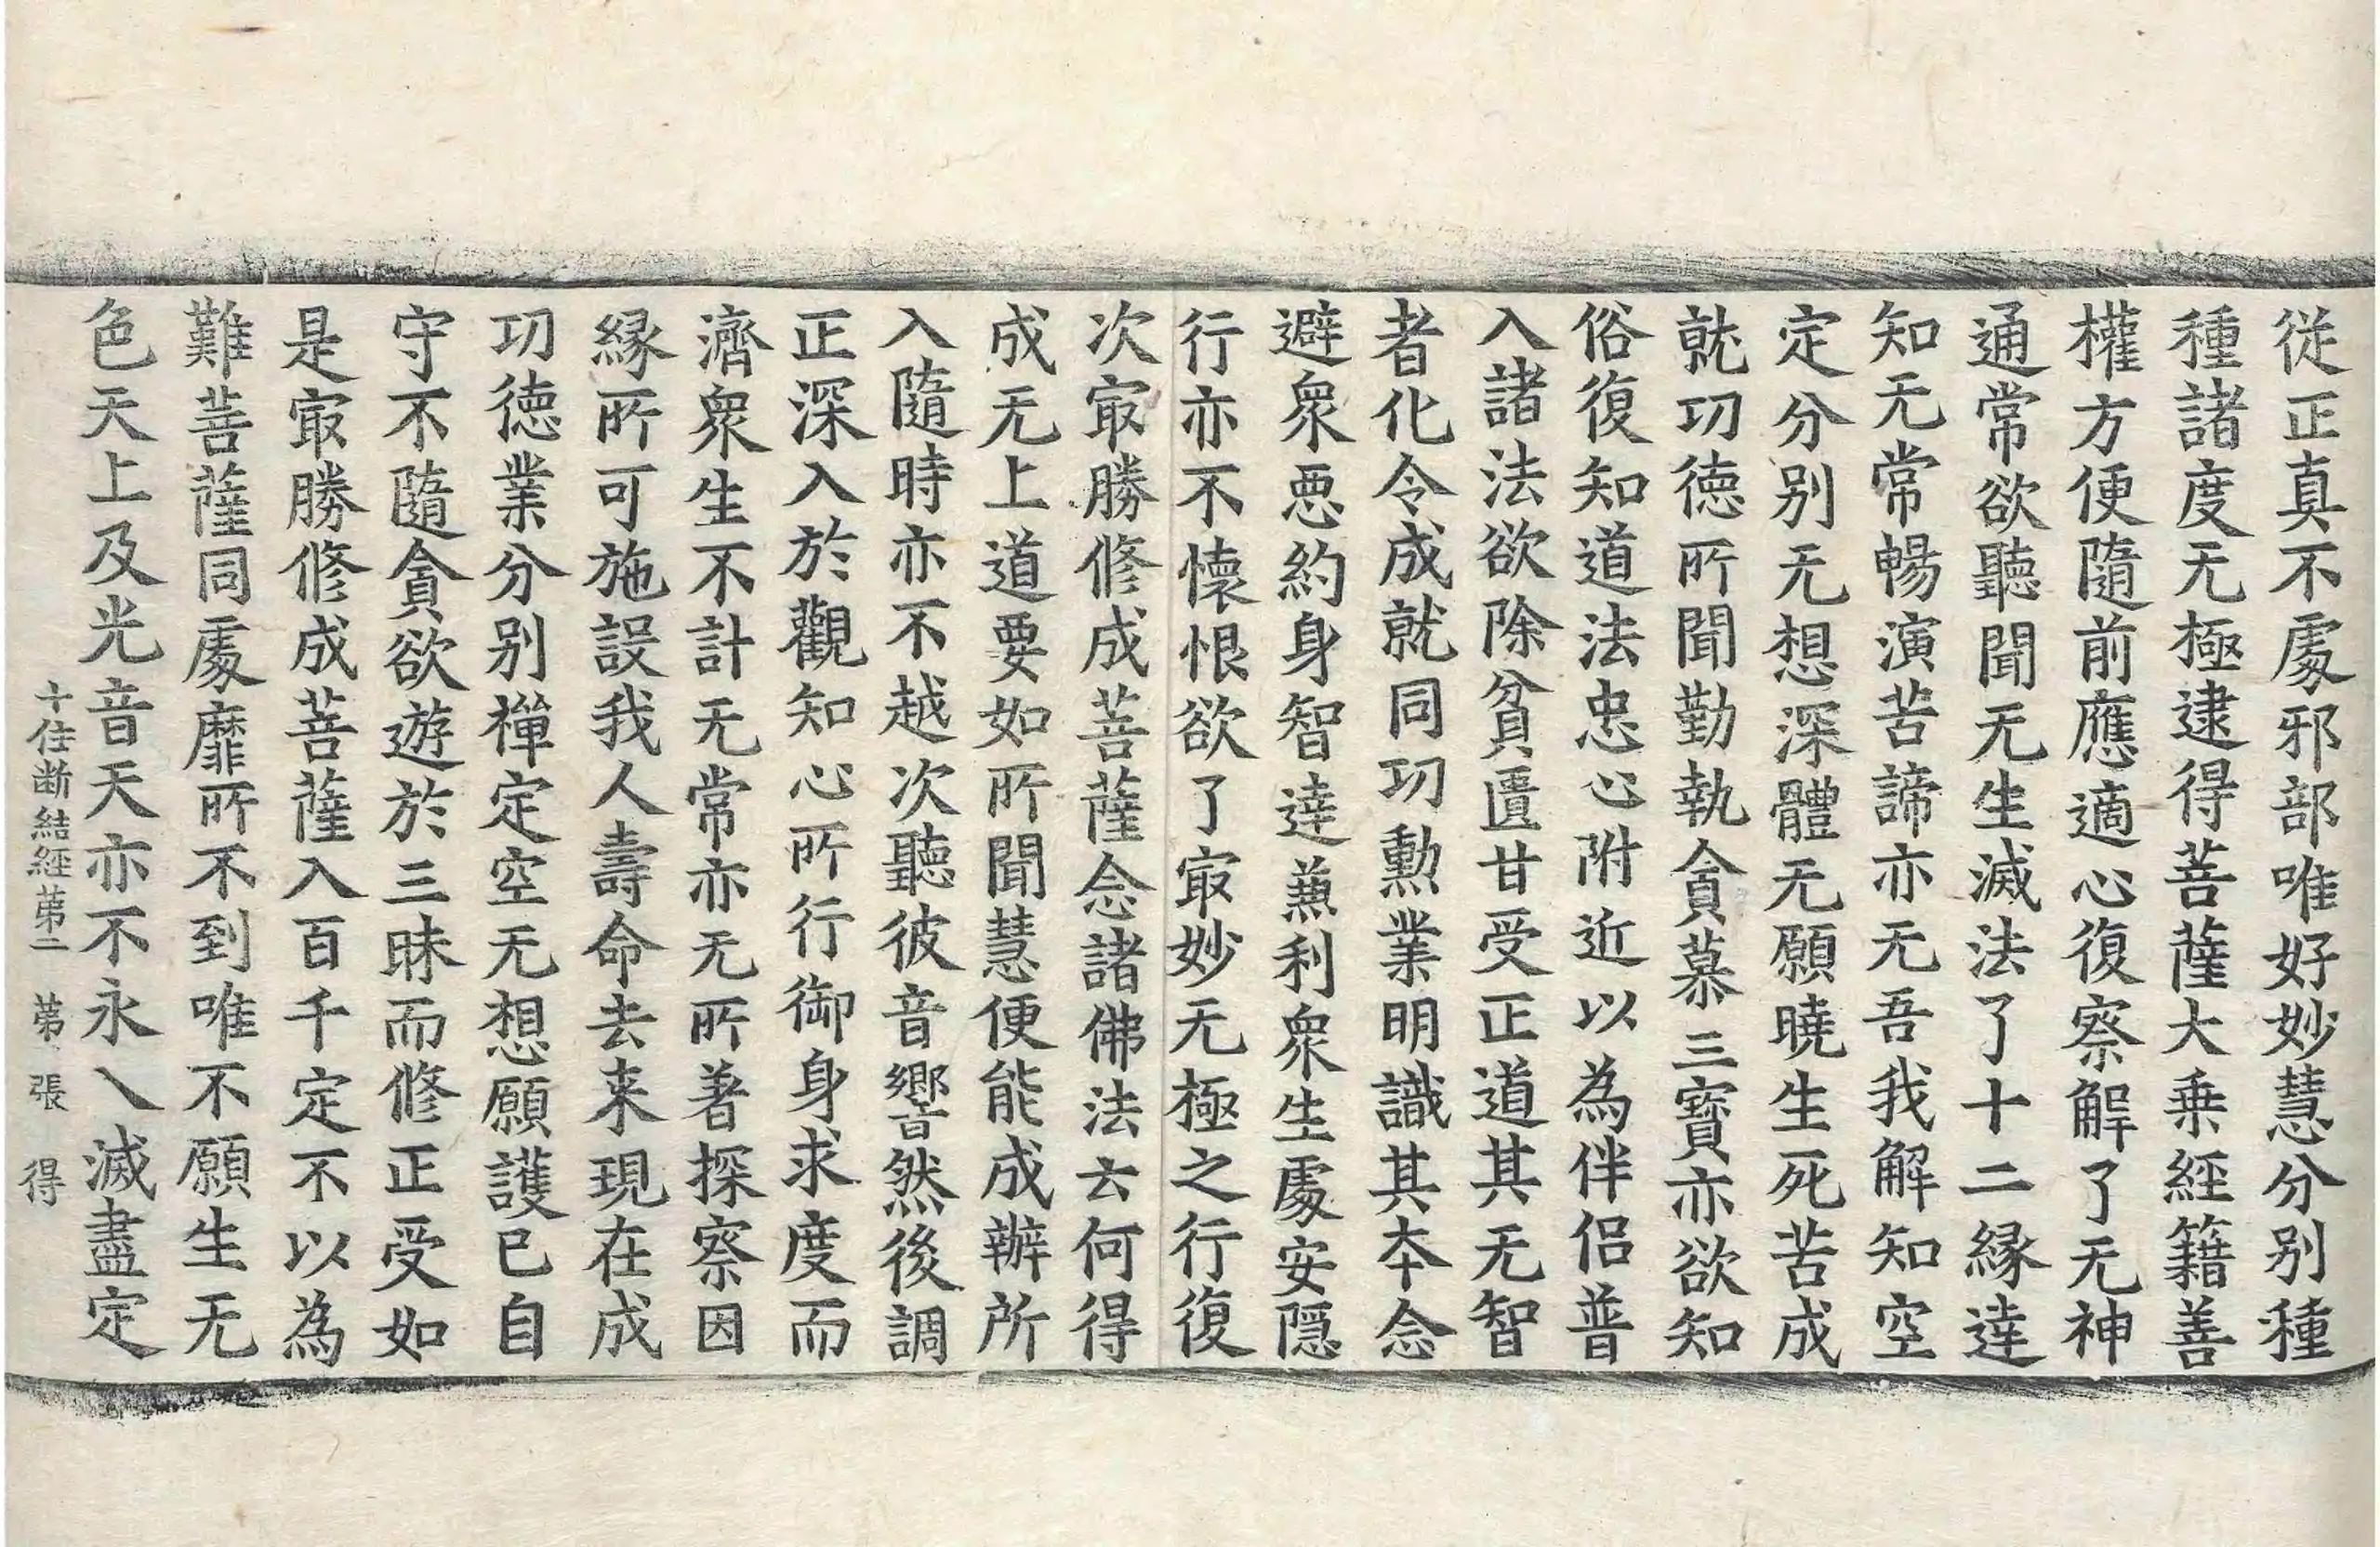 従正真不處邪部唯好妙慧分别種
種諸度无極逮得菩薩大乗經籍善
權方便隨前應適心復察解了无神
通常欲聽聞无生滅法了十二緣達
知无常暢演苦諦亦无吾我解知空
定分别无想深體无願曉生死苦成
就功徳所聞勤執貪慕三寶亦欲知
俗復知道法忠心附近以為伴侣普
入諸法欲除貧匱甘受正道其无智
者化令成就同功勲業明識其夲念
避衆惡約身智達兼利衆生處安隱
行亦不懐恨欲了㝡妙无極之行復
次㝡勝修成菩薩念諸佛法云何得
成无上道要如所聞慧便能成辦所
入隨時亦不越次聽彼音響然後調
正深入於觀知心所行御身求度而
濟衆生不計无常亦无所著探察因
緣所可施設我人壽命去来現在成
功徳業分别禪定空无想願護已自
守不隨貪欲遊於三昧而修正受如
是㝡勝修成菩薩入百千定不以為
難菩薩同處靡所不到唯不願生无
色天上及光音天亦不永入滅盡定
十住断結經苐二 苐 張 得